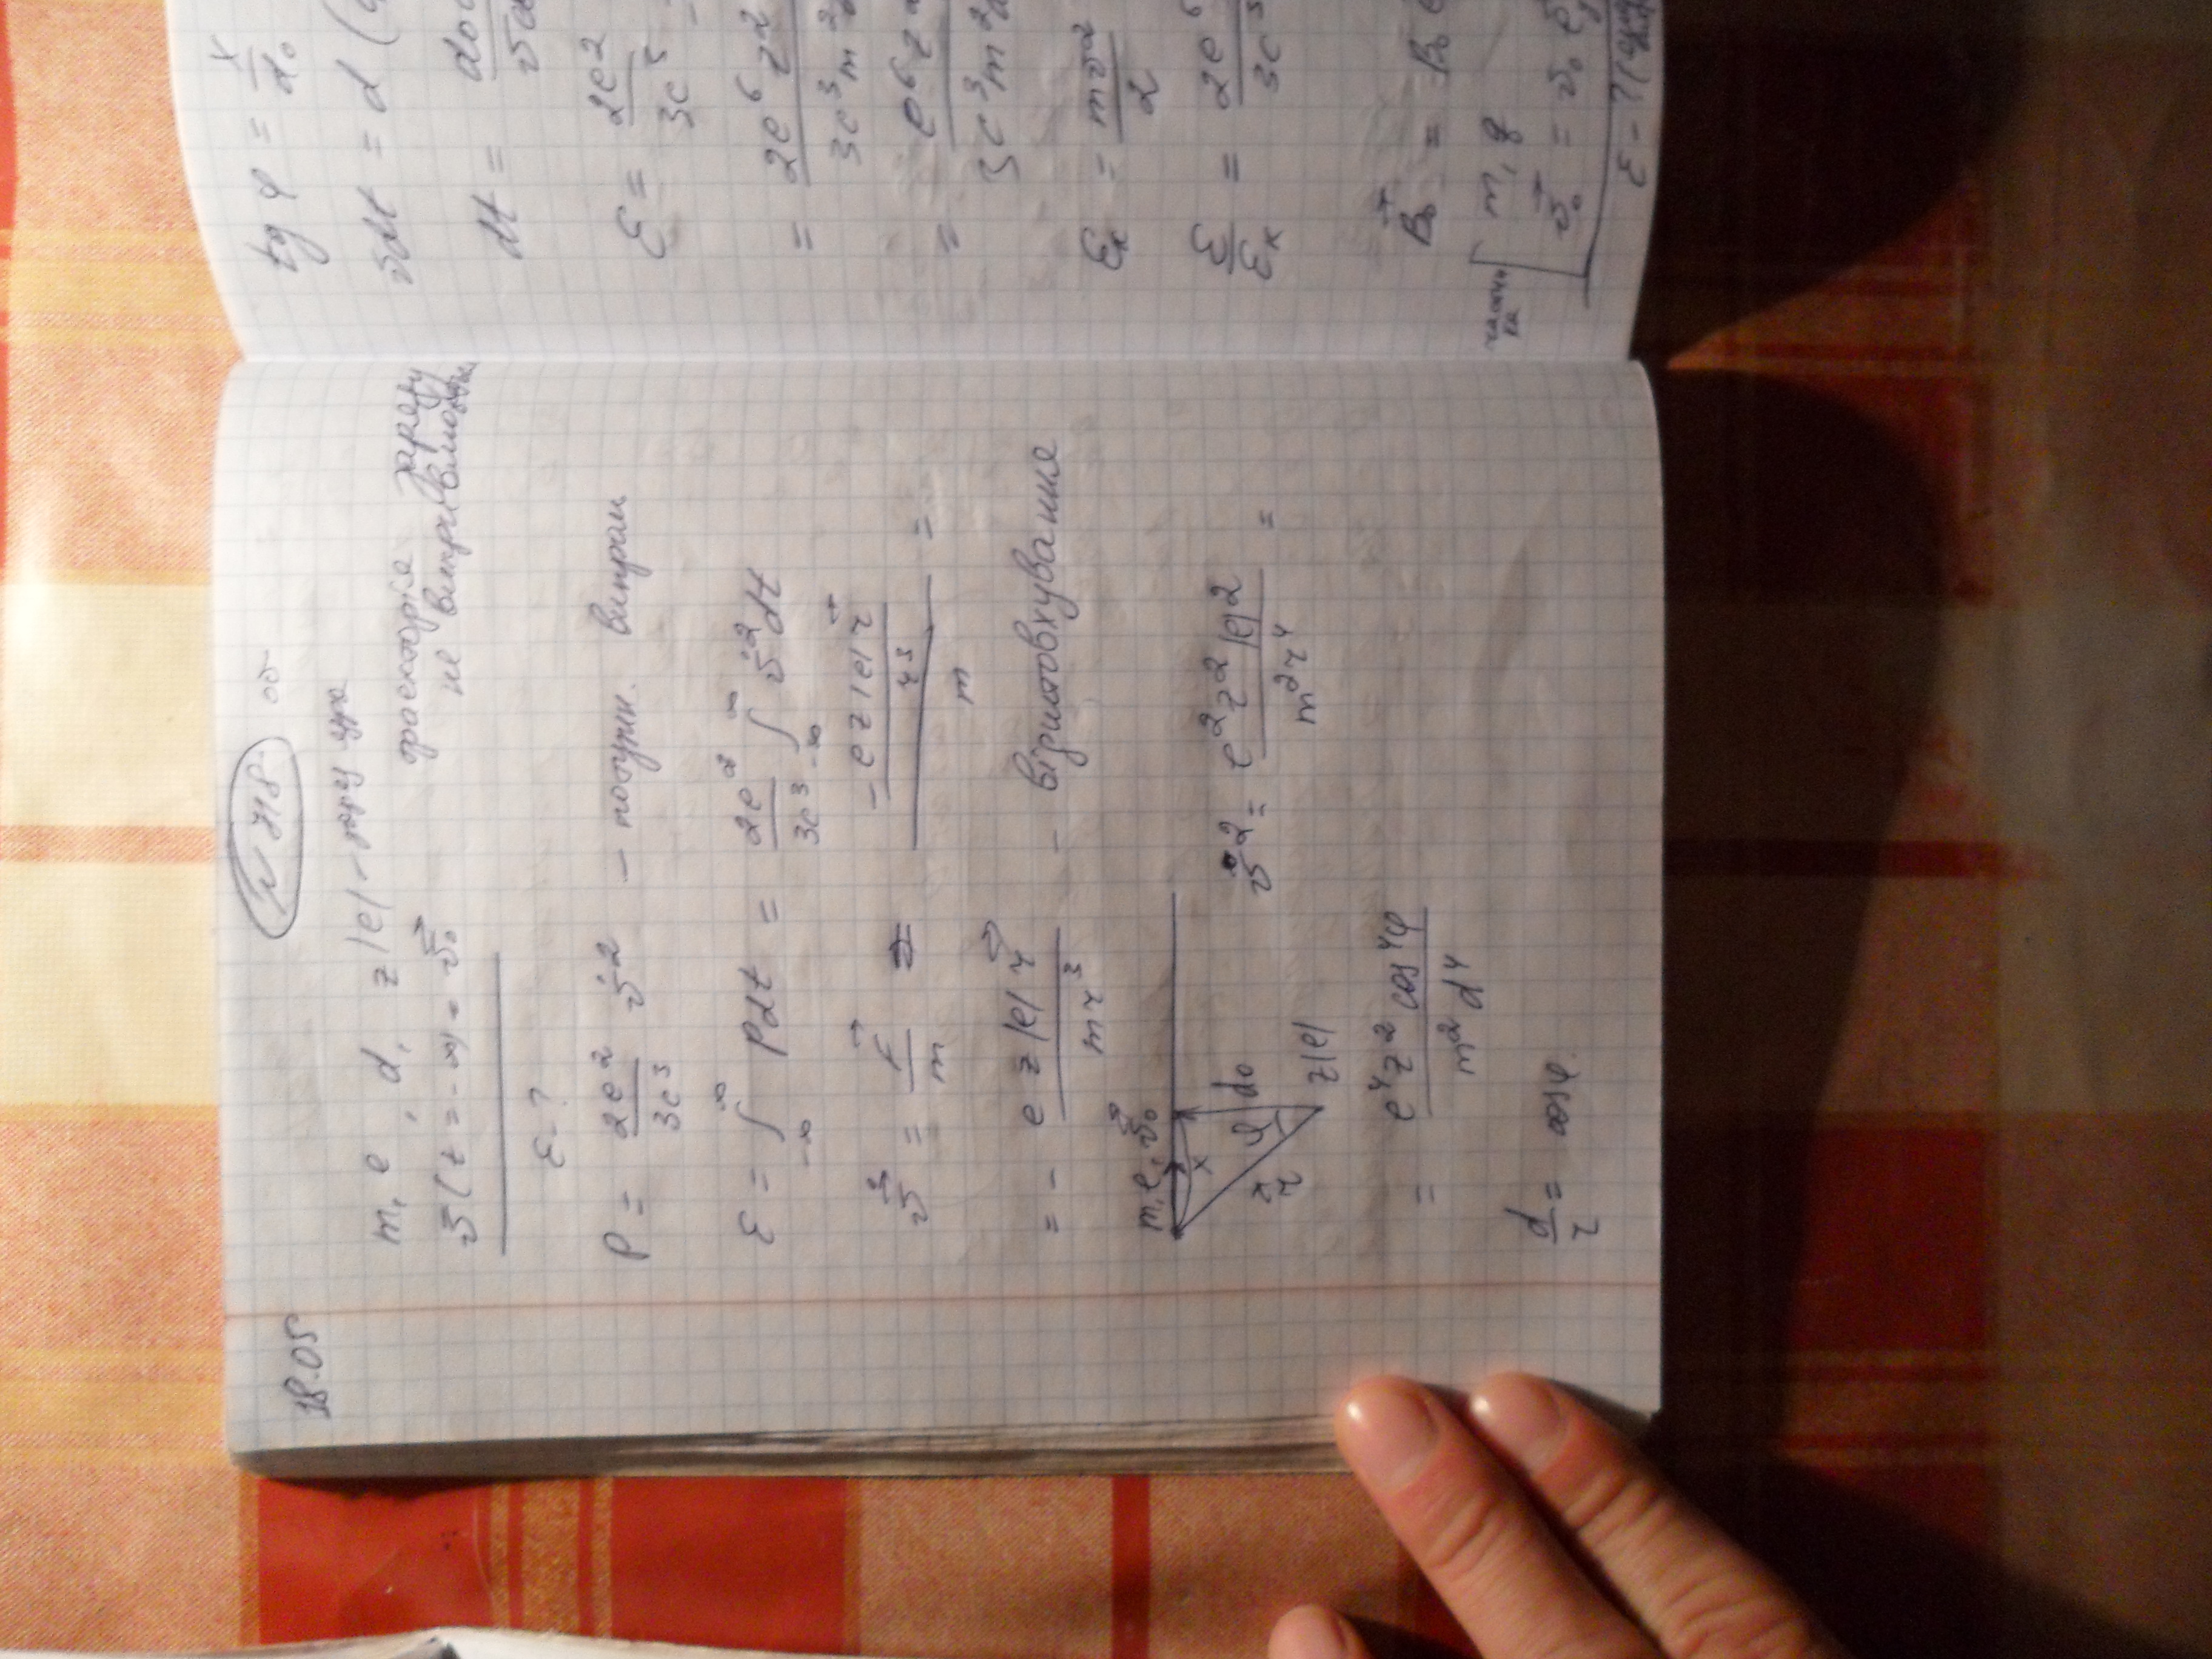 18.05
N 718
m, e, d, z|e| - заряду ядра
v(t = -∞) = v⃗₀
траєкторія заряду
не викрив
ε - ?
P = 2e²/3c³ v̇² - потужн. випром
ε = ∫_{-∞}^{∞} P dt = 2e²/3c³ ∫_{-∞}^{∞} v̇² dt
v̇⃗ = F⃗/m = (-e z|e| r⃗ / r³)/m =
= - e z|e| r⃗ / m r³ - відштовхування
m, e, v⃗₀
x
r⃗
φ
d₀
z|e|
v̇² = e² z² |e|² / m² r⁴ =
= e⁴ z² cos⁴φ / m² d⁴
d/r = cosφ.
tg φ = x/d₀
v dt = d(
dt =
ε = 2e²/3c³
= 2e⁶z²/3c³m²
= e⁶z/3c³m²
εₖ = mv²/2
ε/εₖ = 2e⁶/3c³
B⃗₀ = B₀
частин
ка
m, q
v⃗₀ = v₀ e⃗
ε - ?